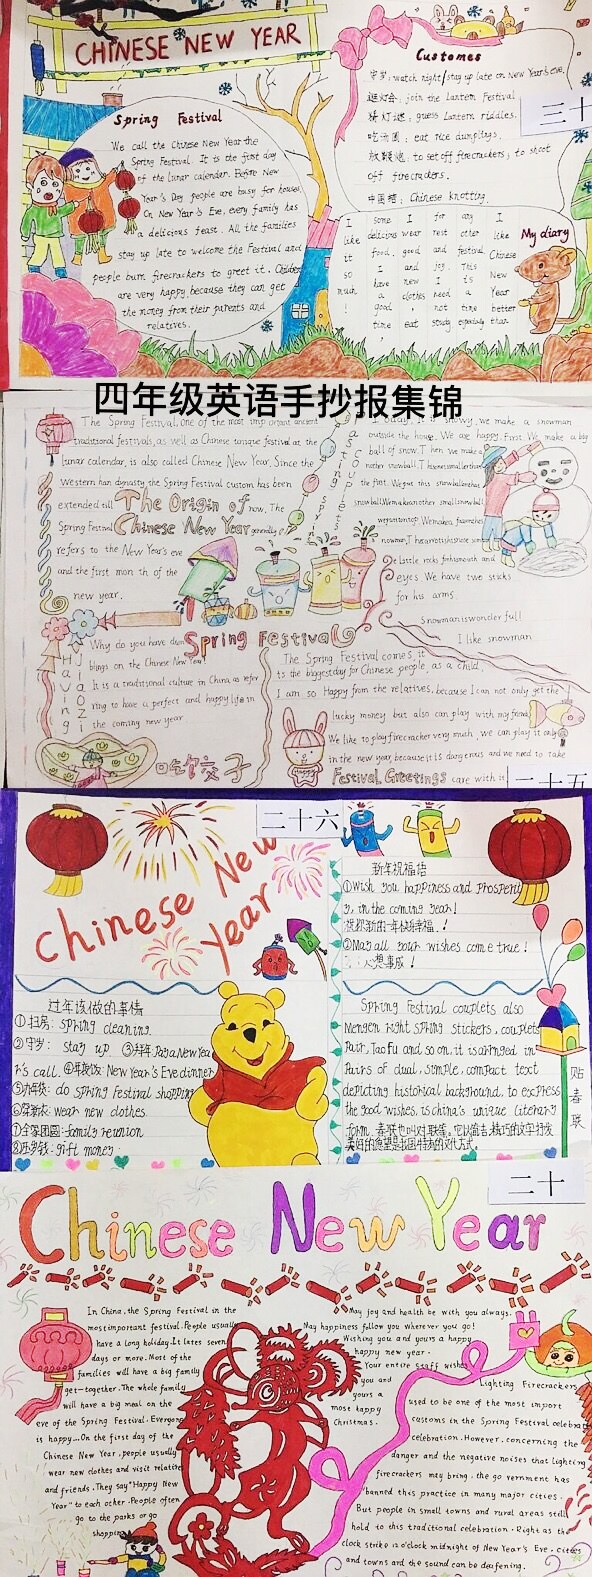 CHINESE NEW YEAR
Spring Festival
We call the Chinese New Year the
Spring Festival. It is the first day
of the lunar calender. Before New
Year's Day people are busy for houses.
On New Year's Eve, every family has
a delicious feast. All the families
stay up late to welcome the Festival and
people burn firecrackers to greet it. Children
are very happy, because they can get
the money from their parents and
relatives.
Customes
守岁: watch night/stay up late on New Year's eve.
逛灯会: join the Lantern Festival
猜灯谜: guess Lantern riddles.
吃汤圆: eat rice dumplings.
放鞭炮: to set off firecrackers; to shoot
off firecrackers.
中国结: Chinese knotting.
三十
My diary
I some I for any I
like delicious wear rest other like
it food. good and festival. Chinese
so I and joy. This New
much have new I is Year
! a clothes need a better
good , not time than
time eat study especially
四年级英语手抄报集锦
The Spring Festival, one of the most important ancient
traditional festivals, as well as Chinese tongue festival at the
lunar calendar, is also called Chinese New Year. Since the
Western han dynasty the Spring Festival custom has been
extended till now. The
The Origin of
Chinese New Year
Spring Festival generally
refers to the New Year's eve
and the first month of the
new year.
Today. It is snowy, we make a snowman
outside the house. We are happy. First. We make a big
ball of snow. Then we make
eyes. We have two sticks
for his arms.
Snowman is wonderfull
I like snowman
Spring Festival
Having
Jiaozi
Why do you have dum
plings on the Chinese New Year?
It is a traditional culture in China as refer
ring to have a perfect and happy life in
the coming new year
吃饺子
The Spring Festival comes, it
is the biggest day for Chinese people, as a child,
I am so Happy from the relatives, because I can not only get the
lucky money but also can play with my friends
We like to play firecracker very muh, we can play it only
in the new year, because it is dangerous and we need to take
care with it
Festival Greetings
二十五
二十六
Chinese New Year
新年祝福语
①Wish you happiness and prosperit
y, in the coming year!
祝你新的一年快乐幸福!
②May all your wishes come true!
想事成!
过年该做的事情
①扫房: spring cleaning.
②守岁: stay up ③拜年: Pay a New Yea
r's call. ④年夜饭: New Year's Eve dinner
⑤办年货: do Spring Festival shopping
⑥穿新衣: wear new clothes.
⑦全家团圆: family reunion
⑧压岁钱: gift money.
Spring Festival couplets also
Mengen right spring stickers, couplets
Pair, Taofu and so on, it is arringed in
Pairs of dual, simple, compact text
depicting historical background, to express
the good wishes, is china's unique literary
form. 春联也叫对联等,它以简洁、精巧的文字抒发
美好的愿望是我国特有的文化方式。
贴春联
二十
Chinese New Year
In China, the Spring Festival in the
most important festival. People usually
have a long holiday. It lates seven
days or more. Most of the
families will have a big family
get-together. The whole family
will have a big meal on the
eve of the Spring Festival. Everyone
is happy... On the first day of the
Chinese New Year, people usually
wear new clothes and visit relative
and friends. They say "Happy New
Year" to each other. People often
go to the parks or go
shopping
May joy and health be with you always.
May happiness follow you wherever you go!
Wishing you and yours a happy
happy new year.
Your entire staff wishes
you and
yours a
most happy
Christmas.
Lighting Firecrackers
used to be one of the most import
customs in the Spring Festival celebrat
celebration. However, concerning the
danger and the negative noises that lighting
firecrackers may bring, the government has
banned this practice in many major cities.
But people in small towns and rural areas still
hold to this traditional celebration. Right as the
clock strike 12 o'clock midnight of New Year's Eve, cities
and towns and the sound can be deafening.